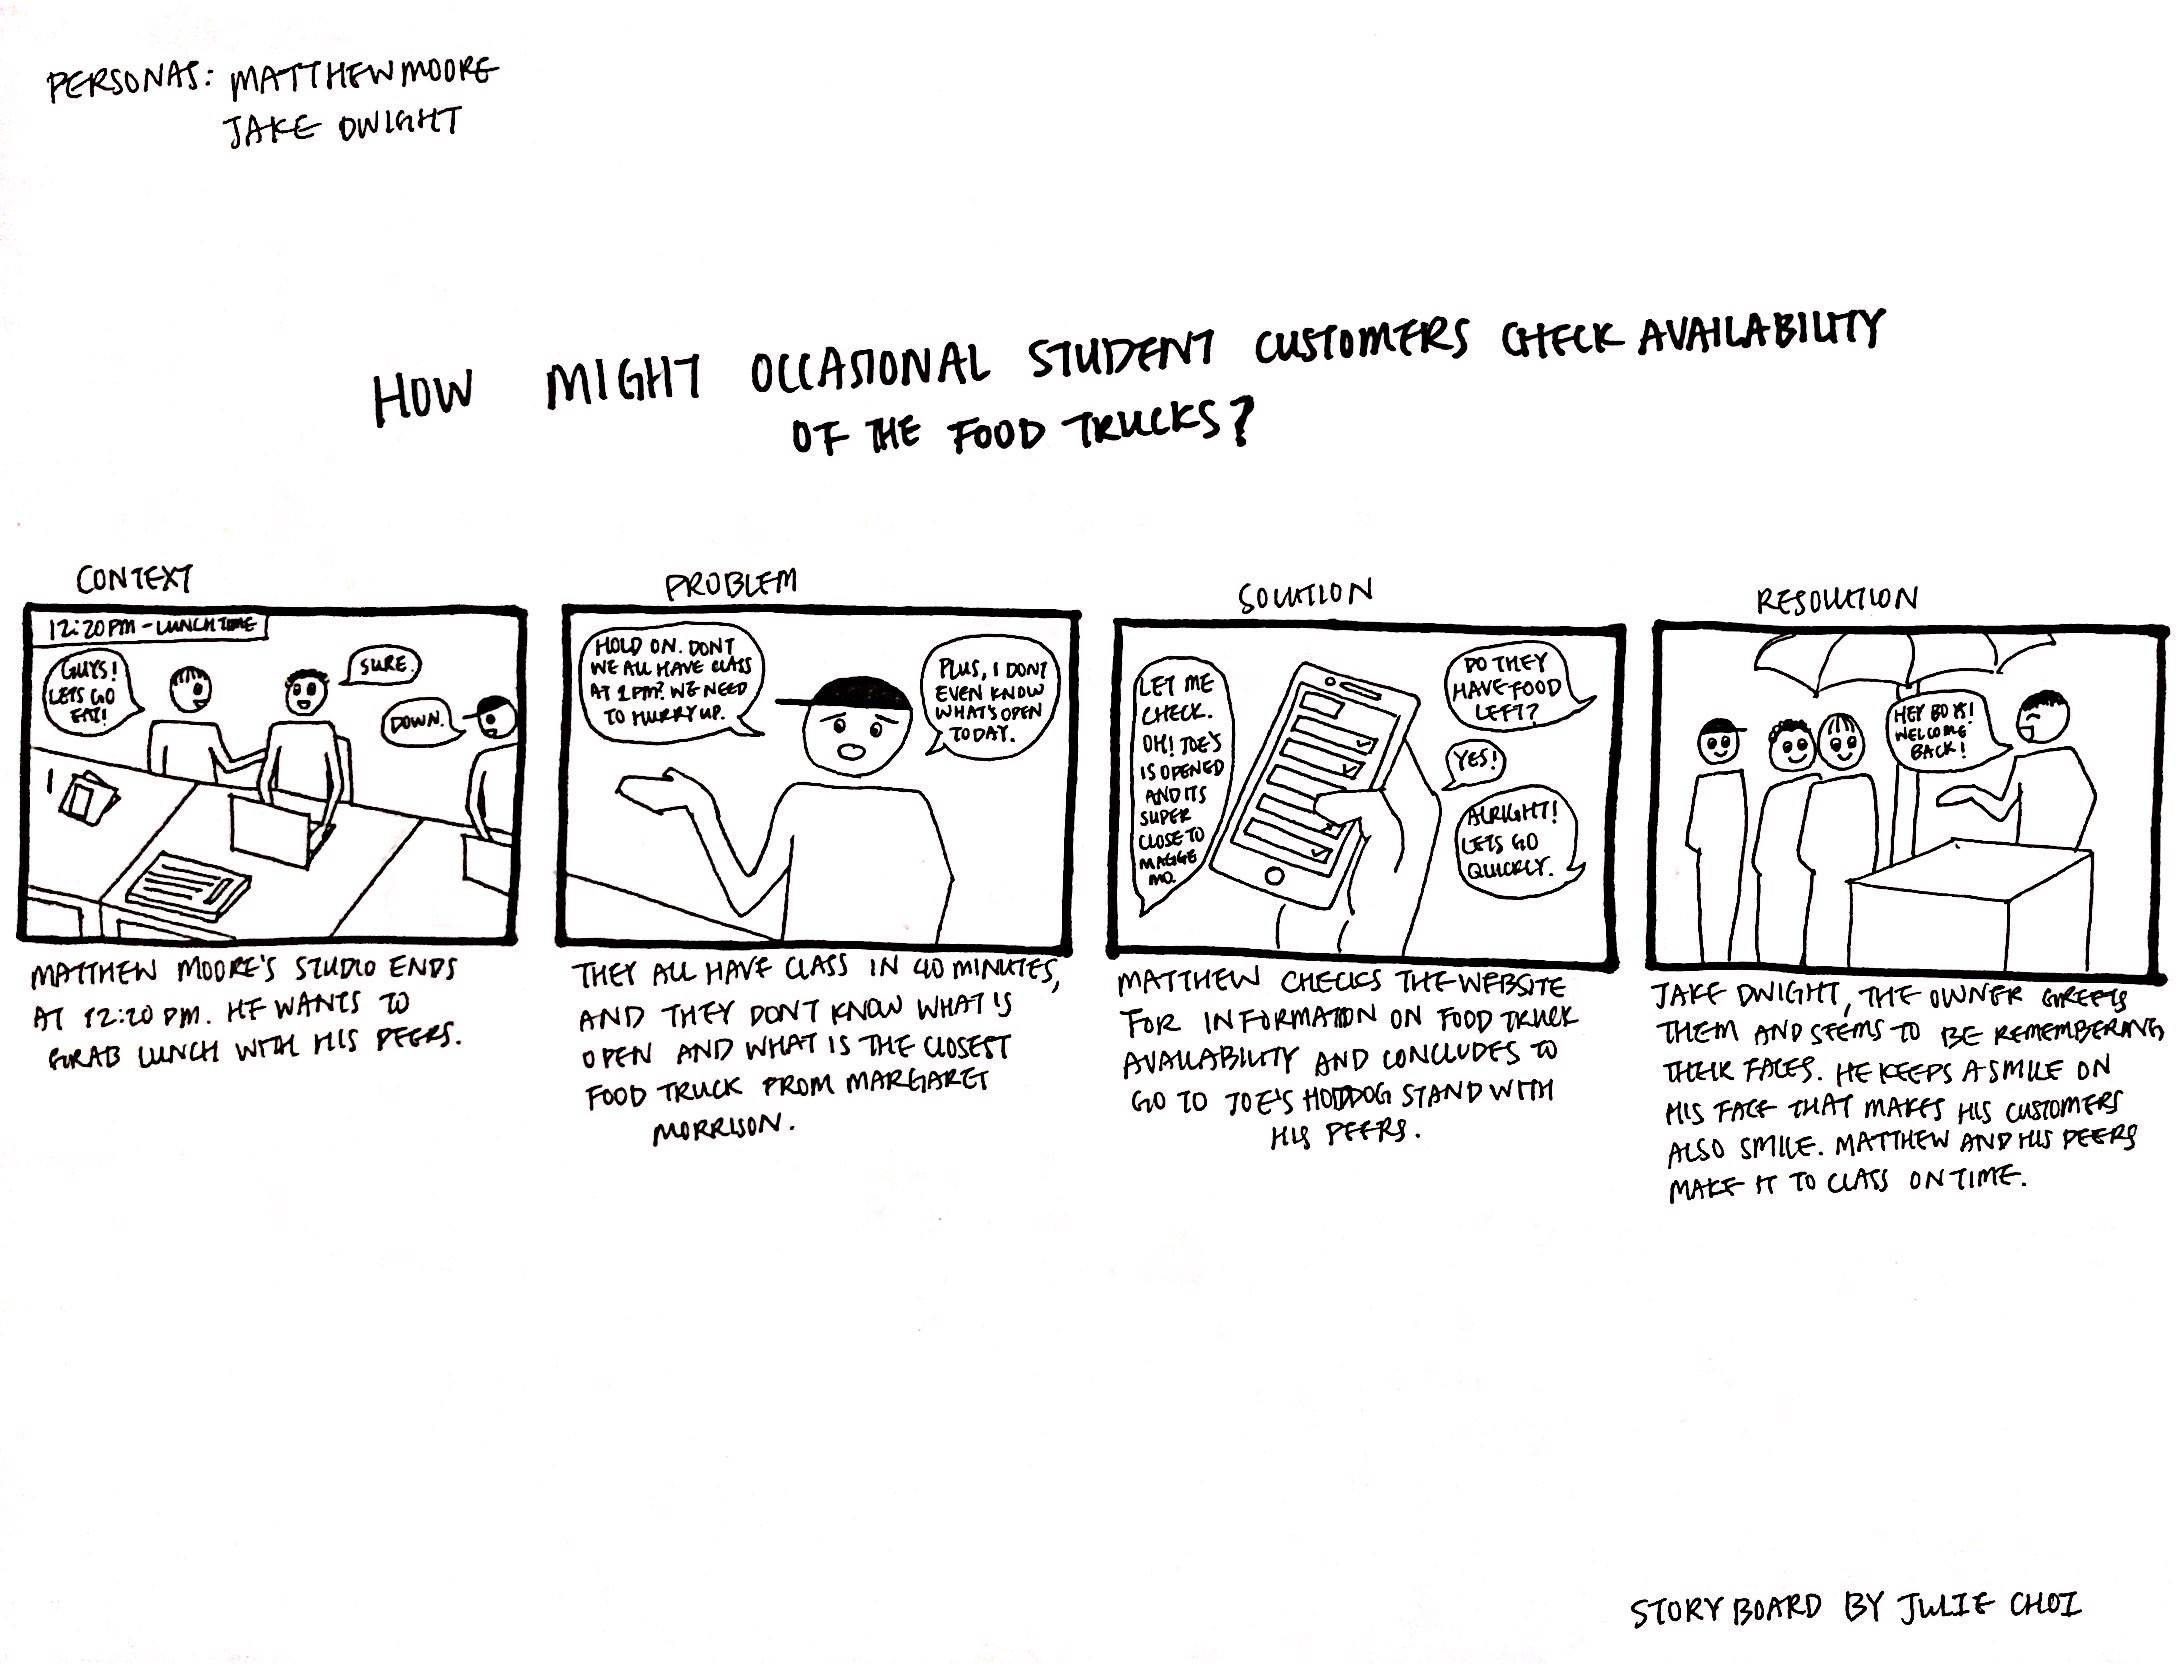 PERSONAS: MATTHEW MOORE
JAKE DWIGHT
HOW MIGHT OCCASIONAL STUDENT CUSTOMERS CHECK AVAILABILITY
OF THE FOOD TRUCKS?
CONTEXT
12:20 PM - LUNCH TIME
GUYS!
LETS GO
EAT!
SURE.
DOWN.
MATTHEW MOORE'S STUDIO ENDS
AT 12:20 PM. HE WANTS TO
GRAB LUNCH WITH HIS PEERS.
PROBLEM
HOLD ON. DONT
WE ALL HAVE CLASS
AT 1PM? WE NEED
TO HURRY UP.
PLUS, I DONT
EVEN KNOW
WHAT'S OPEN
TODAY.
THEY ALL HAVE CLASS IN 40 MINUTES,
AND THEY DONT KNOW WHAT IS
OPEN AND WHAT IS THE CLOSEST
FOOD TRUCK FROM MARGARET
MORRISON.
SOLUTION
LET ME
CHECK.
OH! JOE'S
IS OPENED
AND ITS
SUPER
CLOSE TO
MAGGE
MO.
DO THEY
HAVE FOOD
LEFT?
YES!
ALRIGHT!
LETS GO
QUICKLY.
MATTHEW CHECKS THE WEBSITE
FOR INFORMATION ON FOOD TRUCK
AVAILABILITY AND CONCLUDES TO
GO TO JOE'S HOTDOG STAND WITH
HIS PEERS.
RESOLUTION
HEY BOYS!
WELCOME
BACK!
JAKE DWIGHT, THE OWNER GREETS
THEM AND SEEMS TO BE REMEMBERING
THEIR FACES. HE KEEPS A SMILE ON
HIS FACE THAT MAKES HIS CUSTOMERS
ALSO SMILE. MATTHEW AND HIS PEERS
MAKE IT TO CLASS ON TIME.
STORYBOARD BY JULIE CHOI